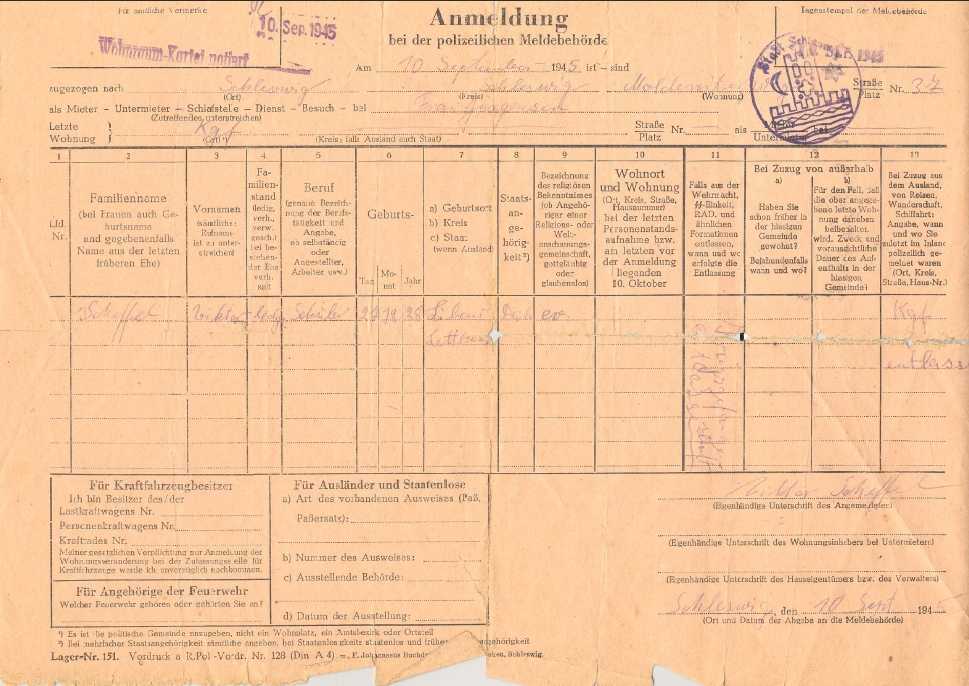 Für amtliche Vermerke
10. Sep. 1945
Wohnraum-Kartei notiert
Anmeldung
bei der polizeilichen Meldebehörde
Tagesstempel der Meldebehörde
Stadt Schleswig
1945
Am 10 September 1945 ist – sind
zugezogen nach Schleswig Schleswig Straße Platz Nr. 37
(Ort) (Kreis) (Wohnung)
als Mieter – Untermieter – Schlafstelle – Dienst – Besuch – bei
(Zutreffendes unterstreichen)
Letzte Wohnung Kgf Straße Platz Nr. als Mieter Untermieter bei
(Ort) (Kreis; falls Ausland auch Staat)
1 2 3 4 5 6 7 8 9 10 11 12 13
Lfd. Nr.
Familienname
(bei Frauen auch Geburtsname
und gegebenenfalls
Name aus der letzten
früheren Ehe)
Vornamen
(sämtliche;
Rufname
ist zu unterstreichen)
Familienstand
ledig,
verh.,
verw.,
gesch.)
Beruf
(genaue Bezeichnung der Berufstätigkeit und
Angabe,
ob selbständig
oder
Angestellter,
Arbeiter usw.)
Geburts-
Tag Monat Jahr
a) Geburtsort
b) Kreis
c) Staat
(wenn Ausland)
Staatsangehörigkeit²)
Bezeichnung
des religiösen
Bekenntnisses
(ob Angehöriger einer
Religions- oder
Weltanschauungsgemeinschaft,
gottgläubig
oder
glaubenslos)
Wohnort
und Wohnung
(Ort, Kreis, Straße,
Hausnummer)
bei der letzten
Personenstandsaufnahme bzw.
am letzten vor
der Anmeldung
liegenden
10. Oktober
Falls aus der
Wehrmacht,
SS-Einheit,
RAD. und
ähnlichen
Formationen
entlassen,
wann und wo
erfolgte die
Entlassung
Bei Zuzug von außerhalb
a)
Haben Sie
schon früher in
der hiesigen
Gemeinde
gewohnt?
Bejahendenfalls
wann und wo?
b)
Für den Fall, daß
die oben angegebene letzte Wohnung daneben
beibehalten
wird, Zweck und
voraussichtliche
Dauer des Aufenthalts in der
hiesigen
Gemeinde¹)
Bei Zuzug aus
dem Ausland,
von Reisen,
Wanderschaft,
Schiffahrt:
Angabe, wann
und wo Sie
zuletzt im Inland
polizeilich gemeldet waren
(Ort, Kreis,
Straße, Haus-Nr.)
Scheffel Viktor ledig Schüler 29 12 28 Libau ev. Kgf
Lettland
entlass
Für Kraftfahrzeugbesitzer
Ich bin Besitzer des/der
Lastkraftwagens Nr.
Personenkraftwagens Nr.
Kraftrades Nr.
Meiner gesetzlichen Verpflichtung zur Anmeldung der
Wohnungsveränderung bei der Zulassungsstelle für
Kraftfahrzeuge werde ich unverzüglich nachkommen.
Für Angehörige der Feuerwehr
Welcher Feuerwehr gehören oder gehörten Sie an?
Für Ausländer und Staatenlose
a) Art des vorhandenen Ausweises (Paß,
Paßersatz):
b) Nummer des Ausweises:
c) Ausstellende Behörde:
d) Datum der Ausstellung:
Viktor Scheffel
(Eigenhändige Unterschrift des Angemeldeten)
(Eigenhändige Unterschrift des Wohnungsinhabers bei Untermietern)
(Eigenhändige Unterschrift des Hauseigentümers bzw. des Verwalters)
Schleswig, den 10 Sept. 194
(Ort und Datum der Abgabe an die Meldebehörde)
¹) Es ist die politische Gemeinde anzugeben, nicht ein Wohnplatz, ein Amtsbezirk oder Ortsteil
²) Bei mehrfacher Staatsangehörigkeit sämtliche angeben, bei Staatenlosigkeit staatenlos und frühere Staatsangehörigkeit
Lager-Nr. 151. Vordruck a R.Pol-Vordr. Nr. 128 (Din A 4) Schleswig.